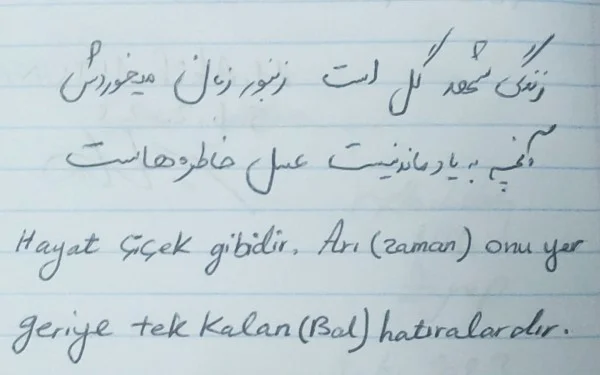 زندگی شهد گل است زنبور زمان میخوردش
آنچه به یاد ماندنیست عسل خاطره هاست
Hayat çiçek gibidir. Arı (zaman) onu yer
geriye tek kalan (Bal) hatıralardır.